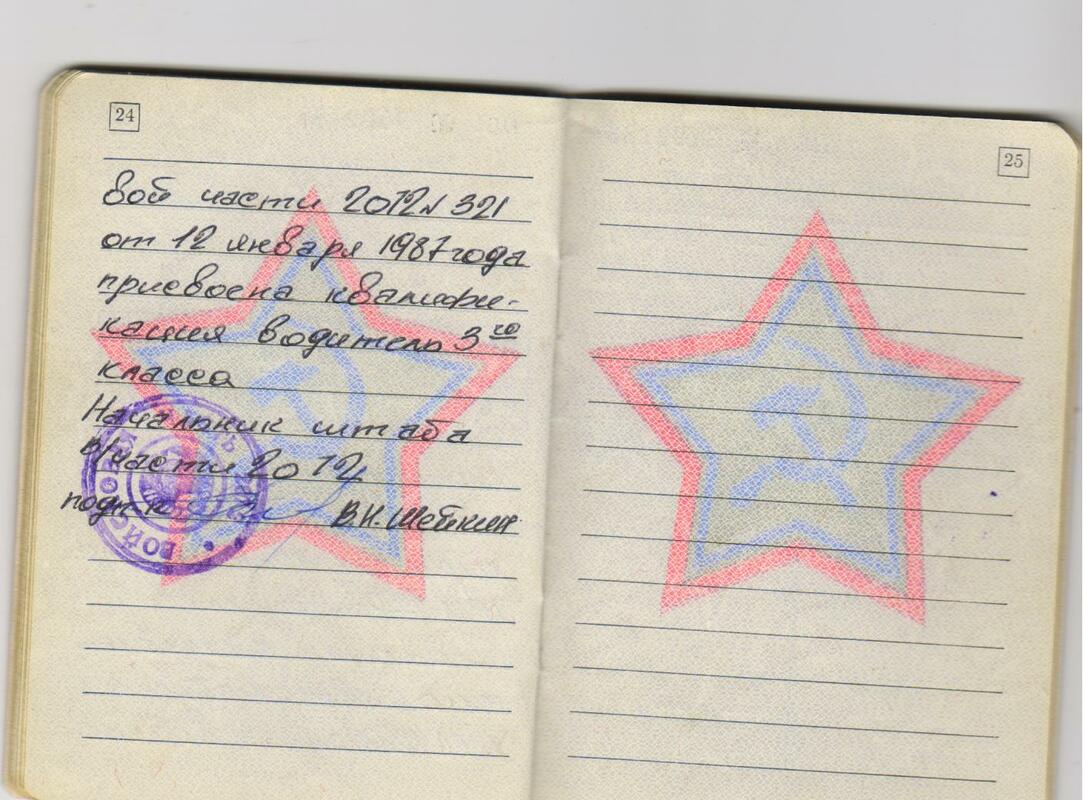 24
вой части 2012 N 321
от 12 января 1987 года
присвоена квалифи-
кация водитель 3го
класса
Начальник штаба
в/части 2012
подп-к В.Н.
25